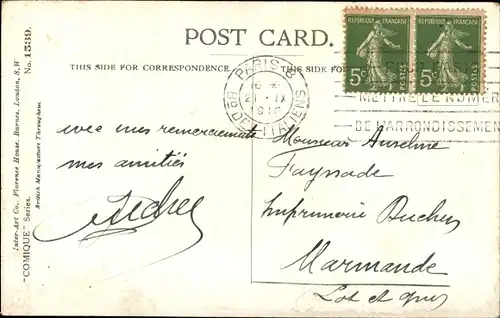 POST CARD.
THIS SIDE FOR CORRESPONDENCE.
THIS SIDE FOR
Inter-Art Co., Florence House, Barnes, London, S.W.
"COMIQUE" Series. British Manufacture Throughout. No. 1539.
REPUBLIQUE FRANÇAISE
5c POSTES
REPUBLIQUE FRANÇAISE
5c POSTES
PARIS 8
Bd DES ITALIENS
METTRE LE NUMER
DE L'ARRONDISSEMEN
avec mes remerciements
mes amitiés
Monsieur Anselme
Fayssade
Imprimerie Duches
Marmande
Lot et Gne